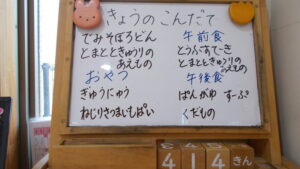 きょうのこんだて
でみそぼろどん
とまとときゅうりの
あえもの
おやつ
ぎゅうにゅう
ねじりさつまいもぱい
午前食
とうふすてーき
とまとときゅうりの
あえもの
午後食
ぱんがゆ すーぷ
くだもの
4 14 きん